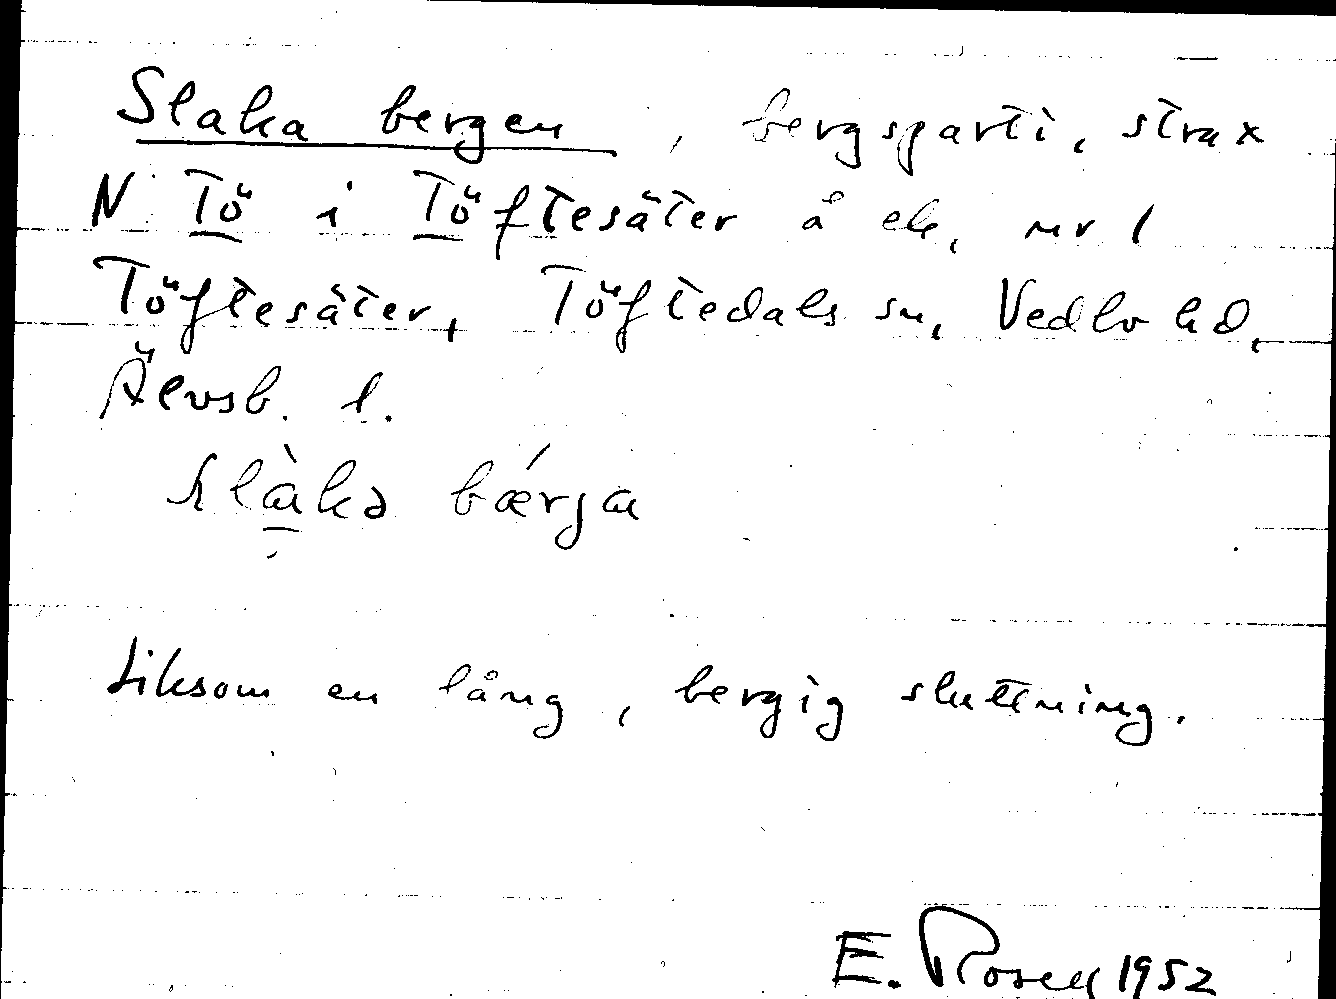 Slaka bergen, bergsparti, strax
N Tö i Töftesäter å ek. nr 1
Töftesäter, Töftedals sn, Vedbo hd,
Älvsb. l.
slàkə bǽrja
Liksom en lång, bergig sluttning.
E. Rosell 1952